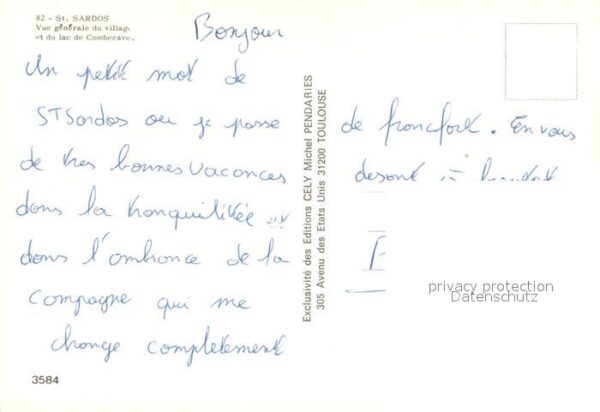 82 - St. SARDOS
Vue générale du village
et du lac de Combecave.
Bonjour
Un petit mot de
ST Sardos ou je passe
de tres bonnes vacances
dans la tranquilitée et
dans l'ambiance de la
campagne qui me
change completement
3584
Exclusivité des Editions CELY Michel PENDARIES
305 Avenue des Etats Unis 31200 TOULOUSE
de francfort. En vous
disant à
privacy protection
Datenschutz